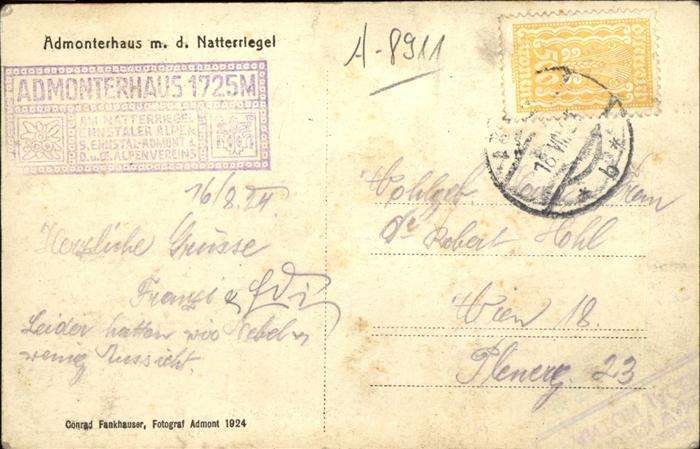 Admonterhaus m. d. Natterriegel
A-8911
ADMONTERHAUS 1725M
AM NATTERRIEGEL
ENNSTALER ALPEN
S. ENNSTAL-ADMONT
D. u. Oe. ALPENVEREINS
16/8. 24.
Herzliche Grüsse
Franzi & Edi
Leider hatten wir Nebel u
wenig Aussicht.
Wohlgeb.
Robert Hohl
Wien 18.
Plenerg. 23
Conrad Fankhauser, Fotograf Admont 1924